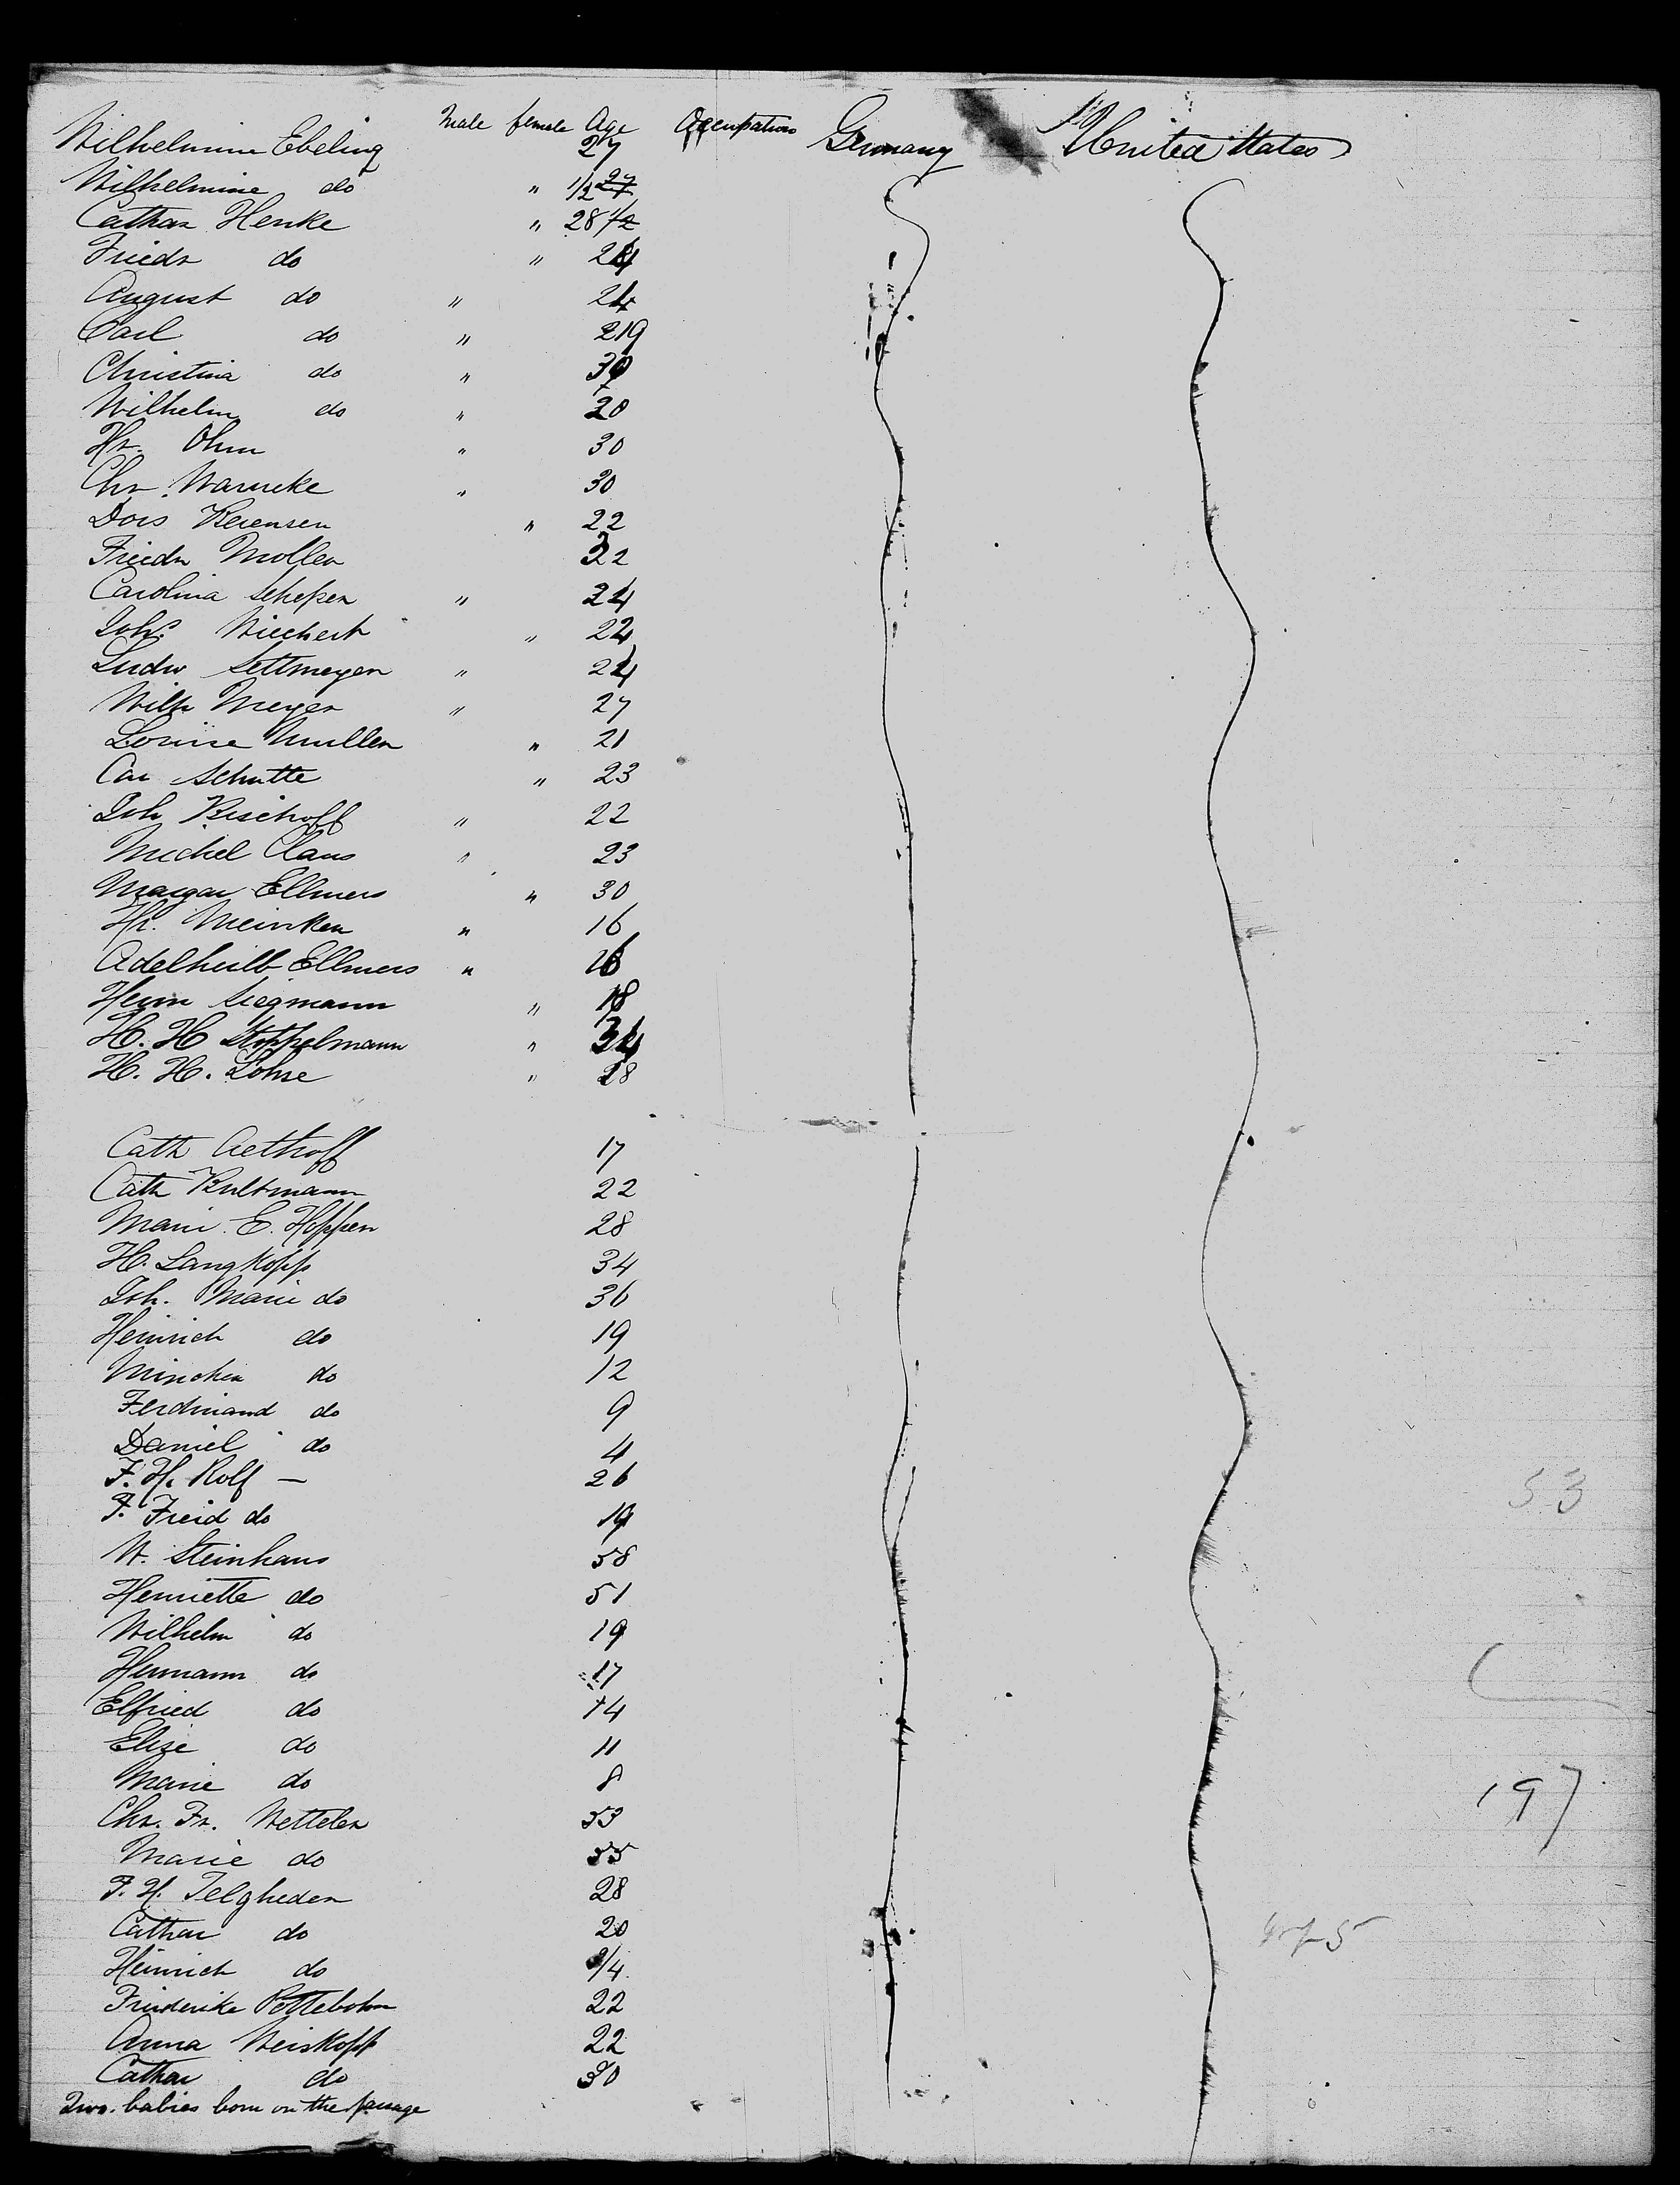 Male female Age Occupation Germany United States
Wilhelmine Ebeling 27
Wilhelmine do " 1/2
Cathar Henke " 28
Friedr do "
August do "
Carl do "
Christina do "
Wilhelm do " 20
Hr. Ohm " 30
Chr. Warneke " 30
Dors " 22
Friedr Moller 22
Carolina Scheper " 24
Joh. Wiechert " 22
Ludw Settmeyer " 24
Wilh Meyer " 27
Louise Muller " 21
Car Schutte " 23
Joh Bischoff " 22
Michel Claus " 23
Margar Ellmers " 30
Hr. Meinken " 16
Adelheid Ellmers "
Herm Siegmann " 18
H. H Stoppelmann " 34
H. H. Lohse " 28
Cath 17
Cath Bultmann 22
Marie E. Hoppen 28
H. Langkopp 34
Joh. Marie do 36
Heinrich do 19
Minchen do 12
Ferdinand do 9
Daniel do 4
F. H. Rolf — 26
F. Freid do 19
W. Steinhaus 58
Henriette do 51
Wilhelm do 19
Hermann do 17
Elfried do 14
Elise do 11
Marie do 8
Chr. Fr. Wetteler 53
Marie do 55
F. H. Telgheder 28
Cathar do 20
Heinrich do 3/4
Friederike Pottebohm 22
Anna Weiskopf 22
Cathar do 30
Two babies born on the passage
53
197